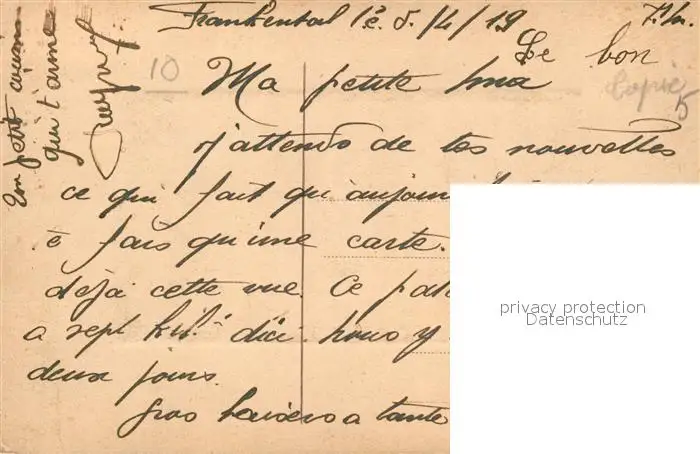 Frankental le 5/4/19
Le bon
10
5
Ma petite
J'attends de tes nouvelles
ce qui fait qu'aujour
fais qu'une carte.
déjà cette vue. Ce
a sept kil. d'ici nous y
deux jours.
Gros baisers a tante
Ton petit cousin
qui t'aime
privacy protection
Datenschutz